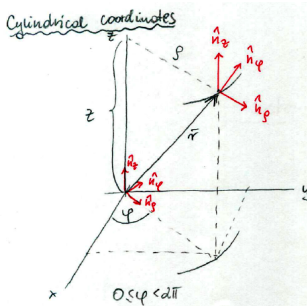 Cylindrical coordinates
z
ρ
n̂_z
n̂_φ
n̂_ρ
z
r̄
n̂_z
n̂_φ
n̂_ρ
φ
y
x
0≤φ<2π